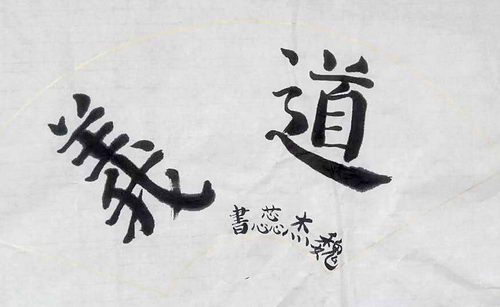 道義
魏杰蕊書